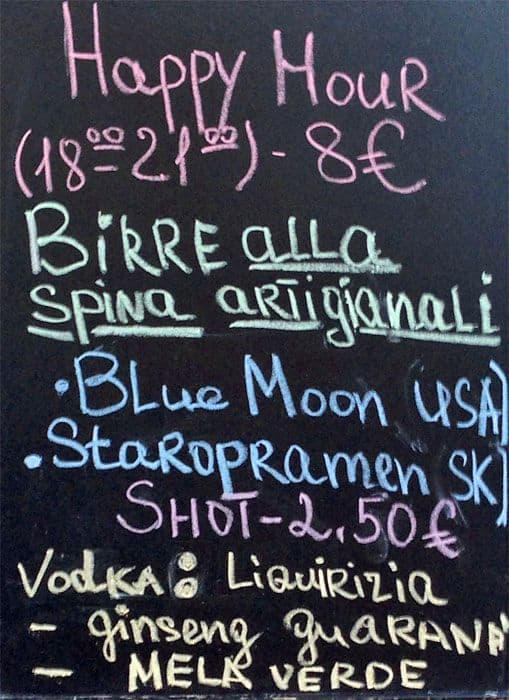 Happy Hour
(18⁰⁰-21⁰⁰) - 8€
BiRRE alla
spina artigianali
• Blue Moon (USA)
• Staropramen SK)
SHOT-2.50€
VodKA: LiquiRizia
- ginseng guaRANA'
- MELA VERDE